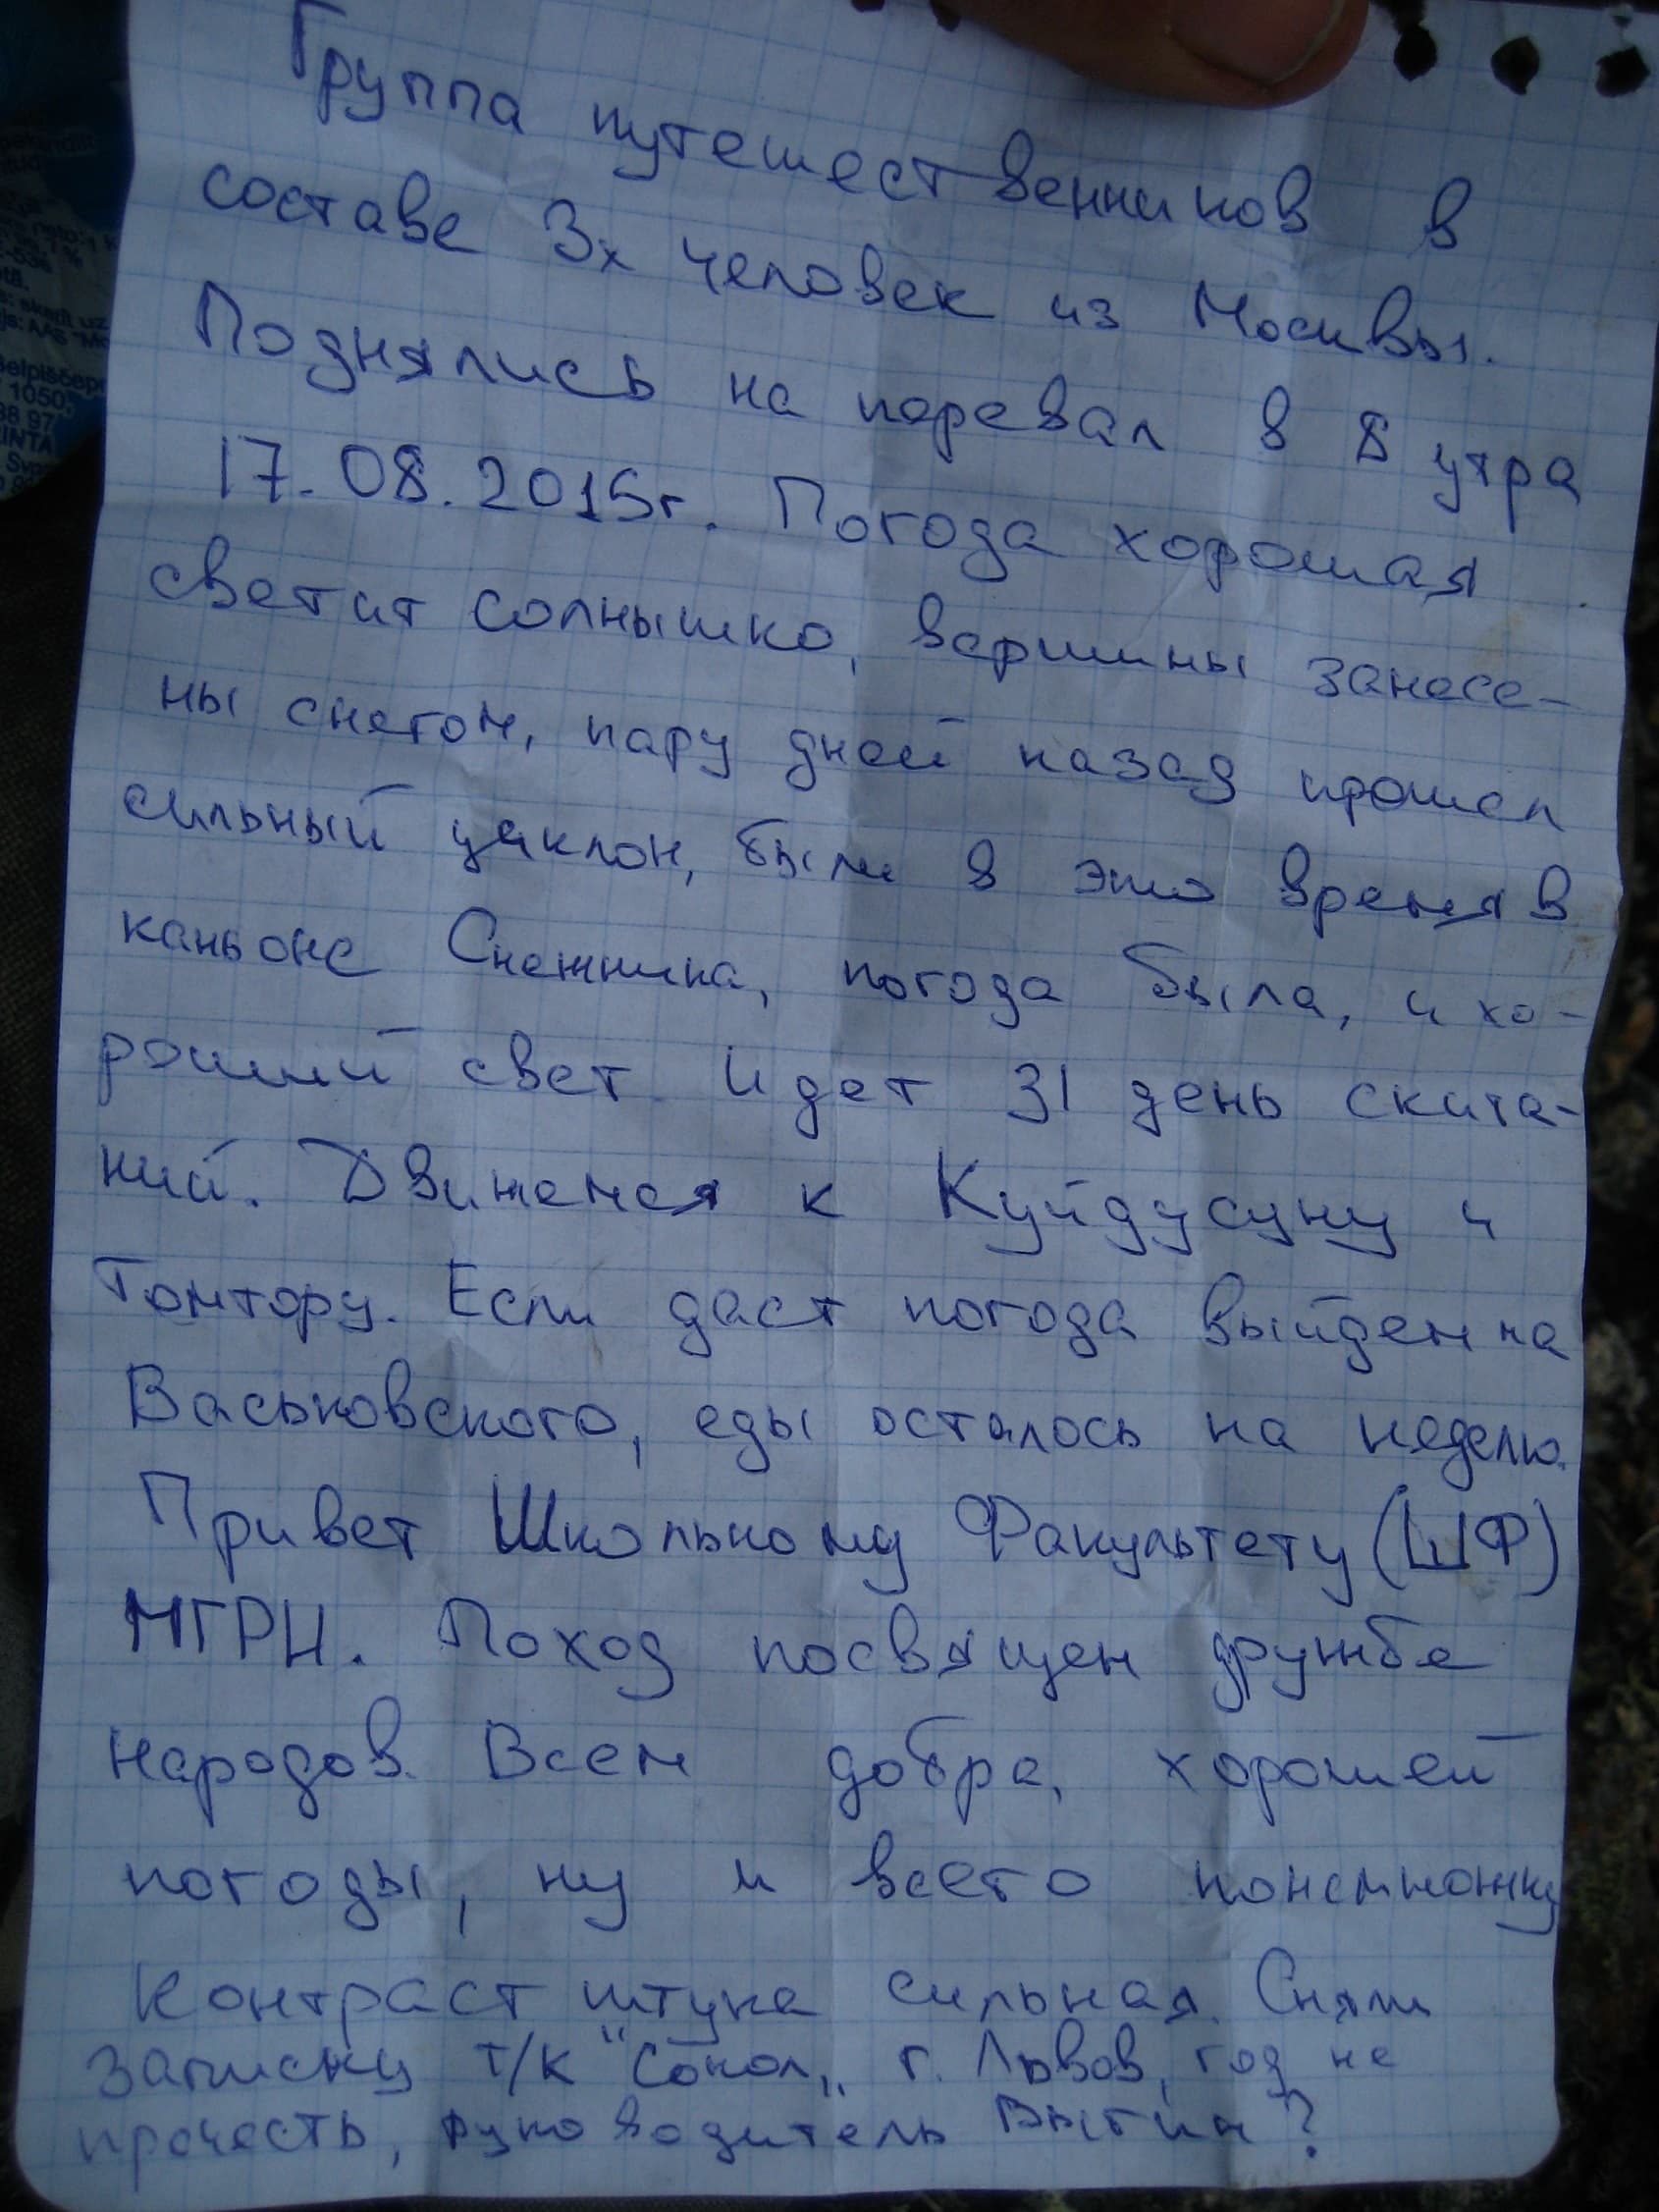 Группа путешественников в
составе 3х человек из Москвы.
Поднялись на перевал в 8 утра
17.08.2015г. Погода хорошая
светит солнышко, вершины занесе-
ны снегом, пару дней назад прошел
сильный циклон, были в это время в
каньоне Снежника, погода была, и хо-
роший свет. Идет 31 день скита-
ний. Движемся к Куйдусуну и
Томтору. Если даст погода выйдем на
Васьковского, еды осталось на неделю.
Привет Школьному Факультету (ШФ)
МГРИ. Поход посвящен дружбе
народов. Всем добра, хорошей
погоды, ну и всего понемножку
Контраст штука сильная. Сняли
записку т/к "Сокол" г. Львов, год не
прочесть, руководитель ?
1050,